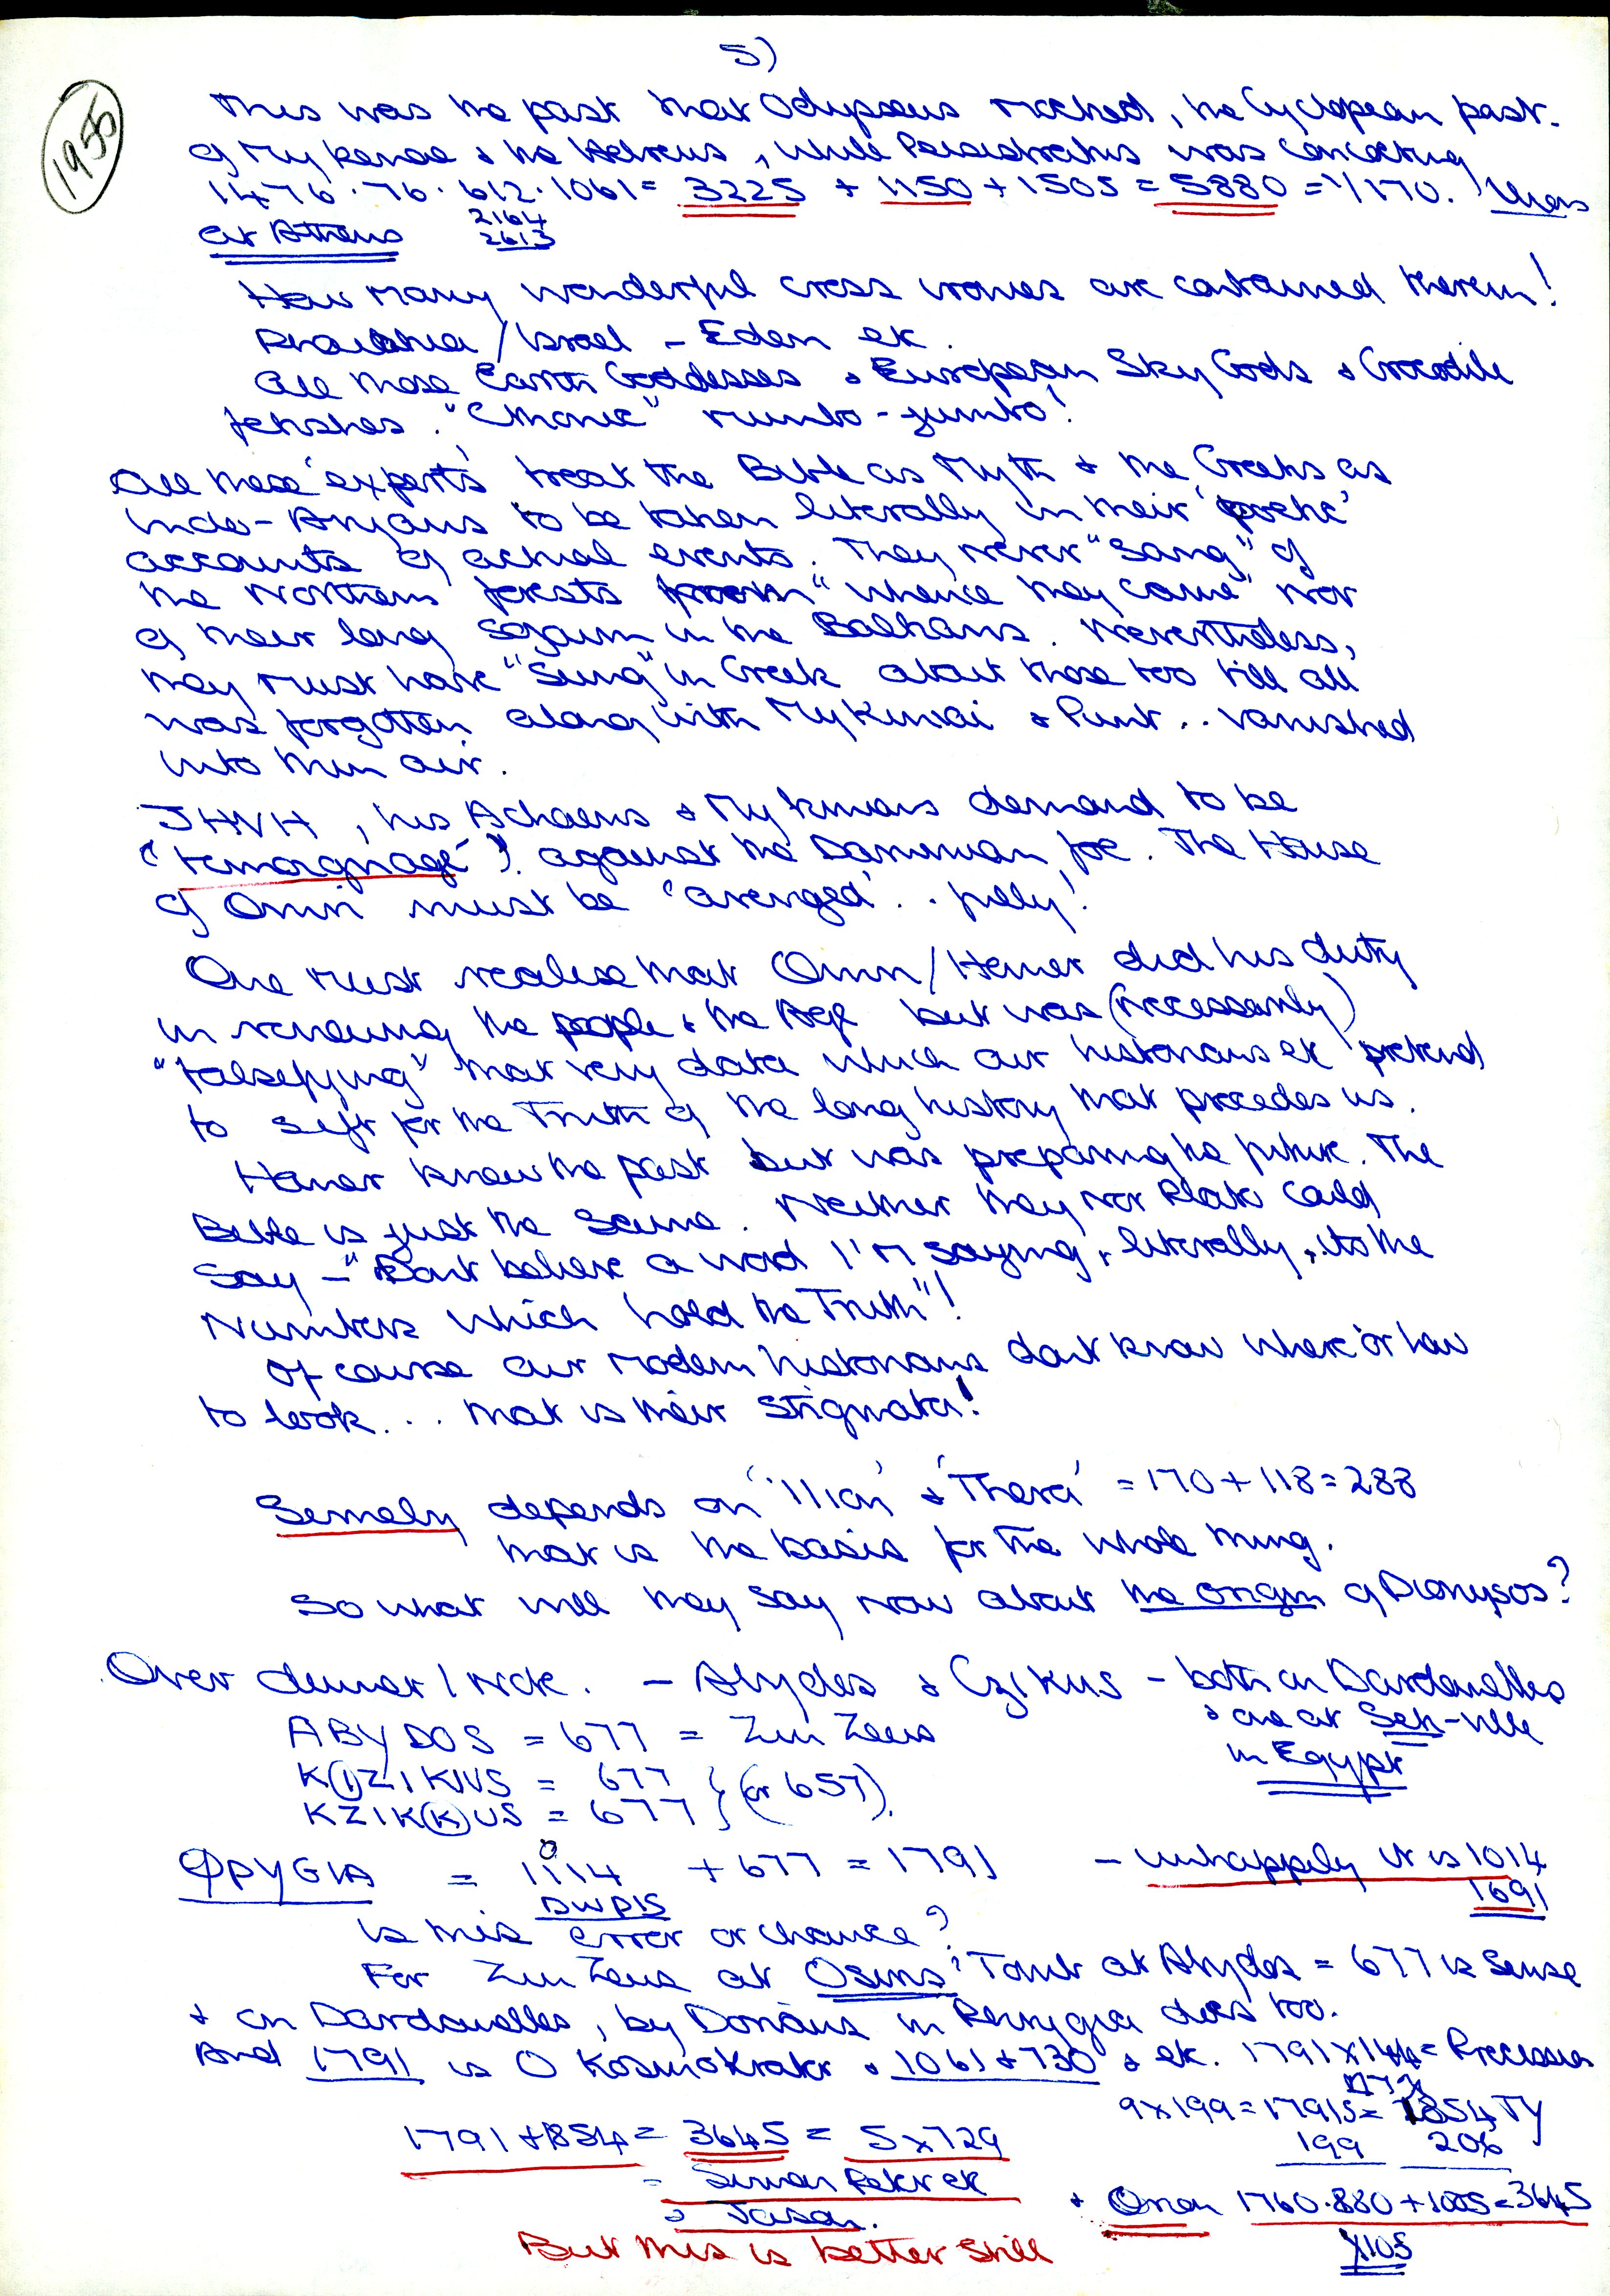 5)
1955
This was the past that Odysseus mocked, the Cyclopean past
of Mykenae & the Hebrews, while Peisistratus was concocting
1476 · 76 · 612 · 1061 = 3225 + 1150 + 1505 = 5880 = 1/170.
2164
2613
at Athens
How many wonderful cross are contained therein!
/ Israel – Eden etc.
All those Earth Goddesses & European Sky Gods & Crocodile
fetishes. "Chthonic" mumbo-jumbo!
All these 'experts' treat the Bible as Myth & the Greeks as
Indo-Aryans to be taken literally in their 'poetic'
accounts of actual events. They never "Sang" of
the Northern forests from "whence they came" nor
of their long sojourn in the Balkans. Nevertheless,
they must have "Sung" in Greek about those too till all
was forgotten along with Mykinai & Punt .. vanished
into thin air.
JHVH, his Achaens & Mykinians demand to be
against the foe. The House
of Omri must be 'avenged' .. fully!
One must realise that Omri/Homer did his duty
in renewing the people & the Age but was (necessarily)
"falsefying" that very data which our historians etc pretend
to sift for the Truth of the long history that precedes us.
Homer knew the past but was preparing the future. The
Bible is just the same. Neither they nor Plato could
say – "Dont believe a word I'm saying, literally, its the
Numbers which hold the Truth"!
Of course our modern historians dont know where or how
to look... that is their stigmata!
Semely depends on 'Ilion' & 'Thera' = 170 + 118 = 288
that is the basis for the whole thing.
So what will they say now about the origin of Dionysos?
Over dinner I note. – Abydos & Czikus – both on Dardanelles
& one at Seti-ville
in Egypt
ABYDOS = 677 = Zun Zeus
K(I)ZIKNUS = 677 } (or 657).
KZIK(K)US = 677 }
ΦΡΥGIA = 1114 + 677 = 1791 – unhappily it is 1014
0
1691
DWPIS
Is this error or chance?
For Zun Zeus at Osiris' Tomb at Abydos = 677 is sense
& on Dardanelles, by Dorians in Phrygia does too.
And 1791 is O Kosmokrator & 1061 + 730 & etc. 1791 x 144 = Precession
9 x 199 = 1791 = 1854 TY
199 206
1791 + 1854 = 3645 = 5 x 729
= Simon Peter etc
& Jason.
& Omen 1760 · 880 + 1005 = 3645
But this is better still